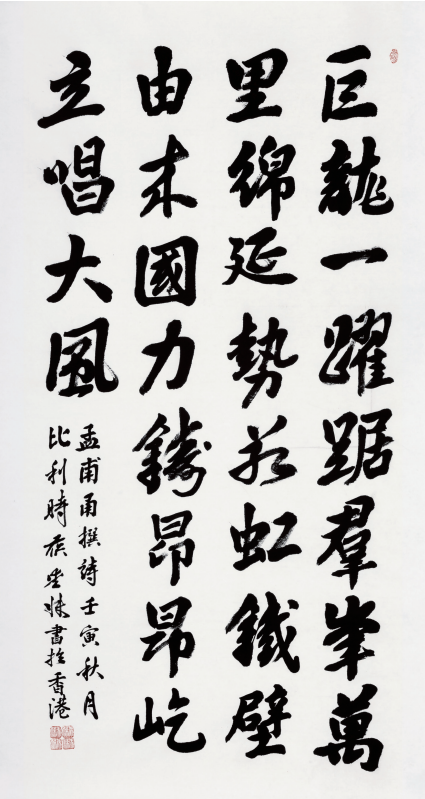 巨龍一躍踞羣峯萬
里綿延勢若虹鐵壁
由来國力鑄昂昂屹
立唱大風
孟甫甬撰詩壬寅秋月
比利時書於香港